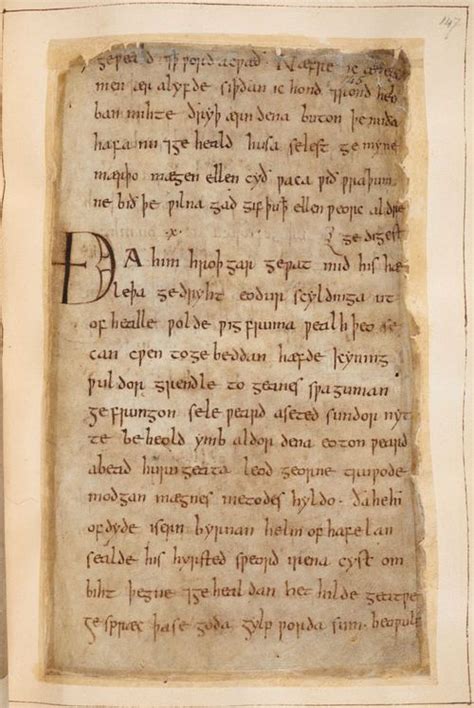 147
geƿeald ⁊ þ ƿord acƿæð Næfre ic
145
men ær alyfde siþðan ic hond ⁊ rond heb
ban mihte ðryþ ærn dena buton þe nu ða
hafa nu ⁊ ge heald husa selest ge myne
mærþo mægen ellen cyð ƿaca ƿið ƿraþum
ne bið þe ƿilna gad gif þu þ ellen ƿeorc aldre
·x· ge digest
Ða him hroþgar geƿat mid his hæ
leþa ge dryht eodur scyldinga ut
of healle ƿolde ƿig fruma ƿealh þeo se
can cƿen to ge beddan hæfde kyning
ƿuldor grendle to geanes sƿa guman
ge frungon sele ƿeard aseted sundor nyt
te be heold ymb aldor dena eoton ƿeard
abead huru geata leod georne truƿode
modgan mægnes metodes hyldo · ða he hī
of dyde isern byrnan helm of hafelan
sealde his hyrsted sƿeord irena cyst om
biht þegne ⁊ ge healdan het hilde geatƿe
ge spræc þa se goda gylp ƿorda sum · beoƿulf